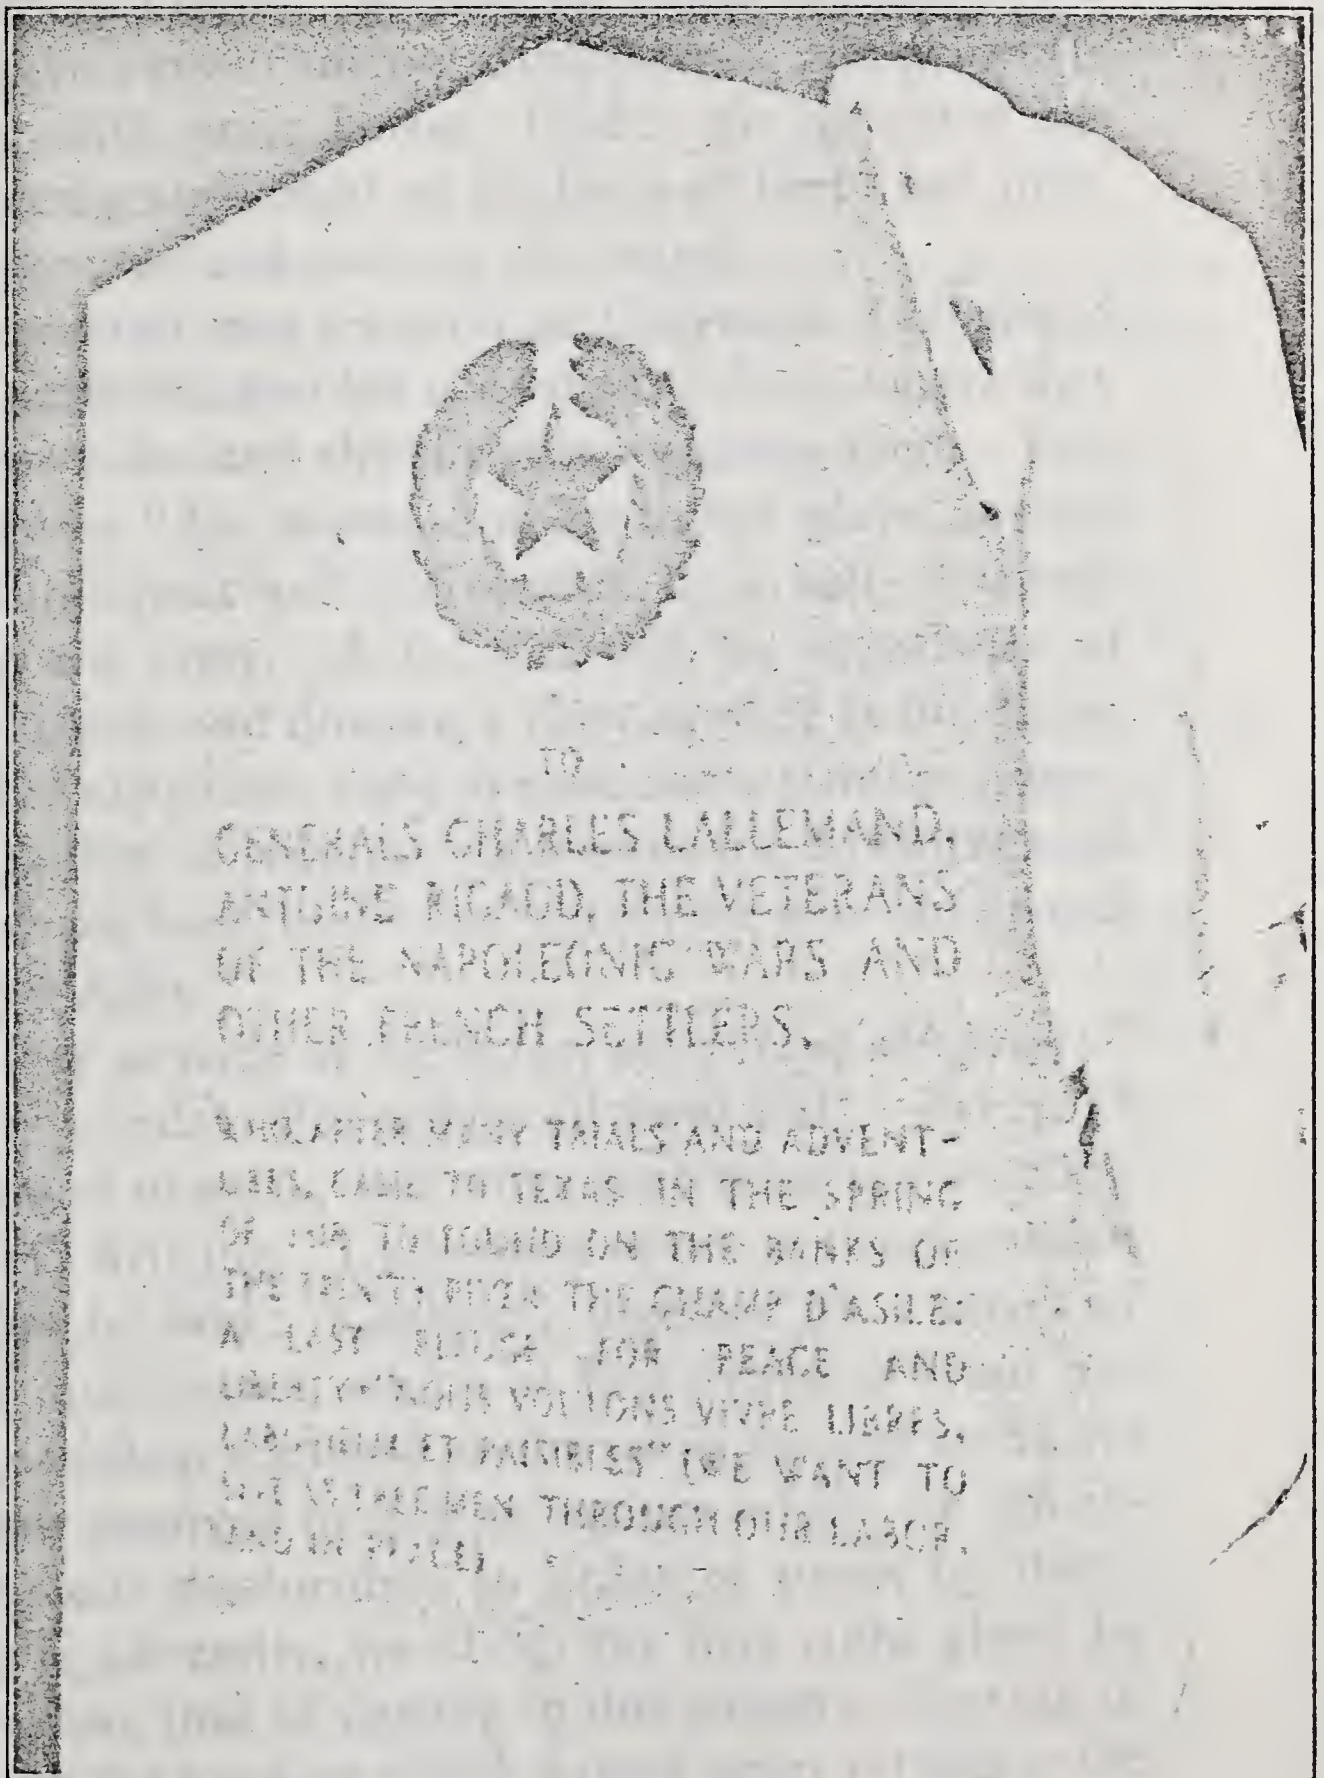 TO
GENERALS CHARLES LALLEMAND,
ANTOINE RIGAUD, THE VETERANS
OF THE NAPOLEONIC WARS AND
OTHER FRENCH SETTLERS,
WHO AFTER MANY TRIALS AND ADVENT-
CAME TO TEXAS IN THE SPRING
OF TO FOUND ON THE BANKS OF
THE TRINITY RIVER THE CHAMP D'ASILE:
A LAST REFUGE FOR PEACE AND
LIBERTY. VOULONS VIVRE LIBRES,
LABORIEUX ET PAISIBLES" (WE WANT TO
THROUGH OUR LABOR,
AND IN PEACE)